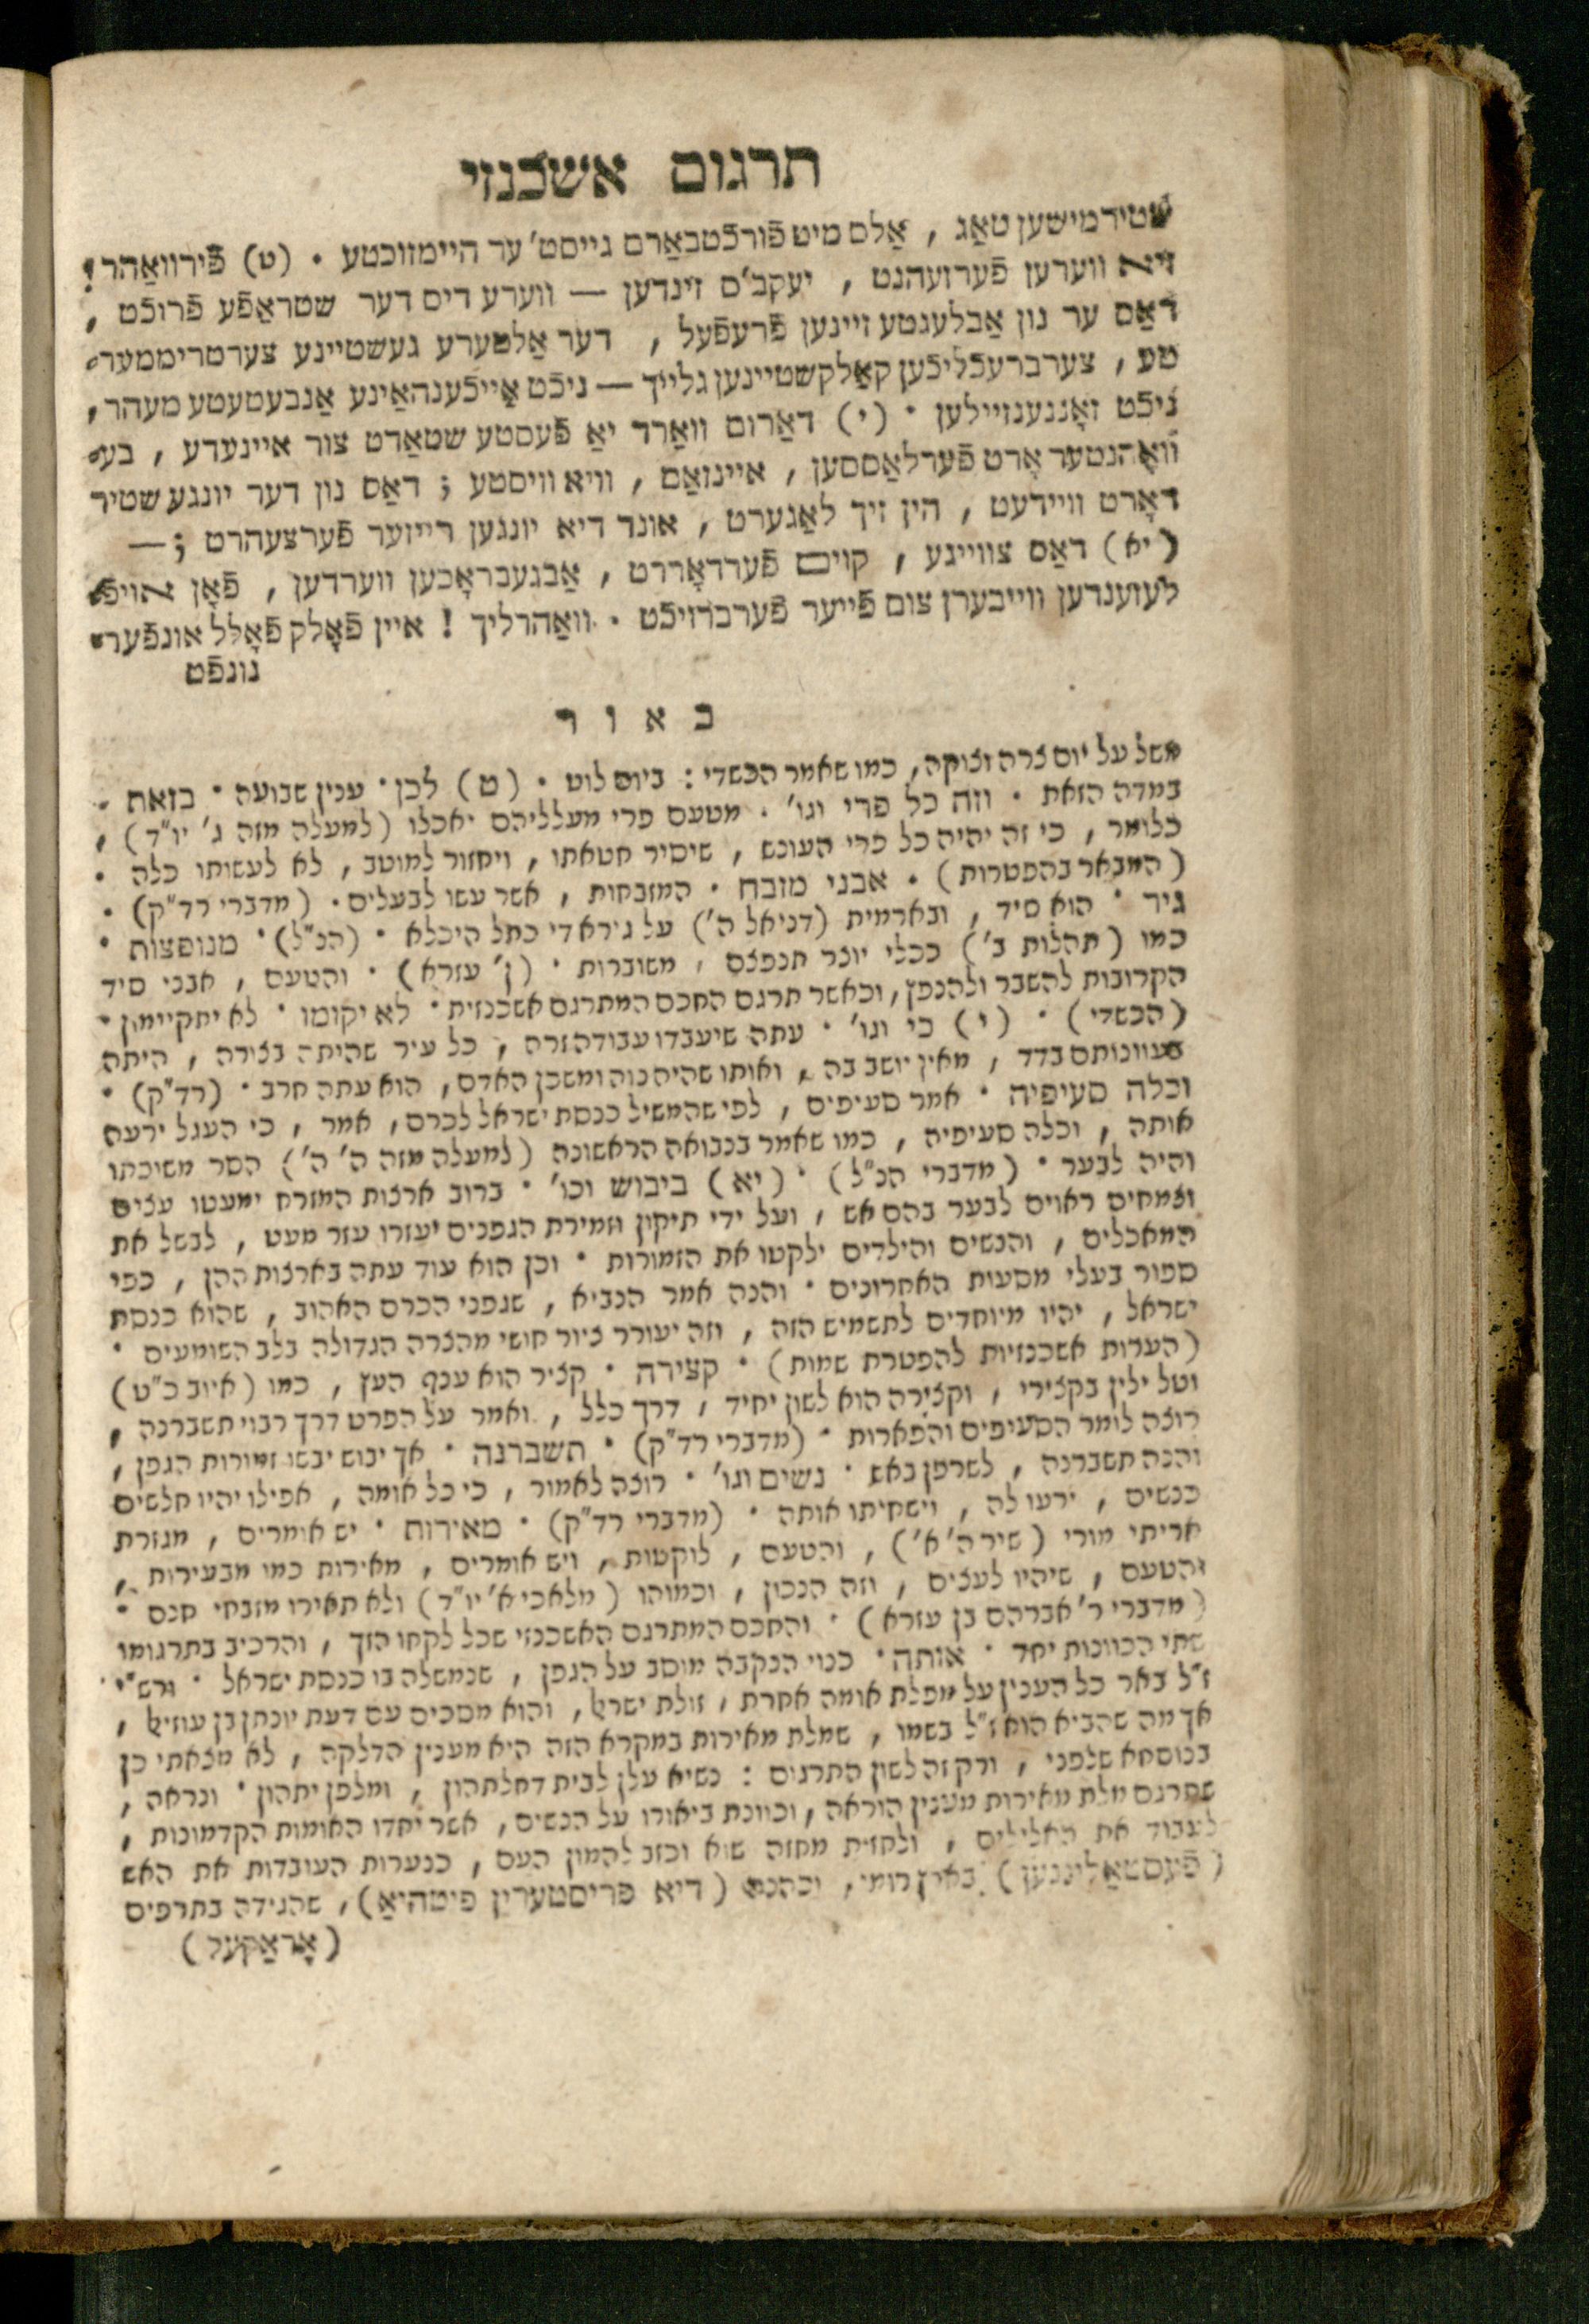 תרגום אשכנזי
שטירמישען טאַג , אַלס מיט פֿורכֿטבאַרם גייסט' ער היימזוכטע • (ט) פֿירוואַהר !
זיא ווערען פֿערזעהנט , יעקב'ס זינדען — ווערע דיס דער שטראַפֿע פֿרוכֿט ,
דאַס ער נון אַבלעגטע זיינען פֿרעפֿעל , דער אַלטערע געשטיינע צערטרימטער־
טע , צערברעכֿליכֿען קאַלקשטיינען גלייך — ניכֿט אייכֿענהאַינע אַנבעטעטע מעהר,
ניכֿט זאָננענזיילען • (י) דאַרום וואַרד יאַ פֿעסטע שטאַדט צור איינעדע , בע־
וואָהנטער אָרט פֿערלאַססען , איינזאַם , וויא וויסטע ; דאַס נון דער יונגע שטיר
דאָרט וויידעט , הין זיך לאַגערט , אונד דיא יונגען רייזער פֿערצעהרט ; —
(יא) דאַס צווייגע , קוים פֿערדאָררט , אַבגעבראָכען ווערדען , פֿאָן אויפֿ־
לעזענדען ווייבערן צום פֿייער פֿערברויכֿט • וואַהרליך ! איין פֿאָלק פֿאָלל אונפֿער־
נונפֿט
ב א ו ר
משל על יום צרה וצוקה, כמו שאמר הכשדי : ביום לוט • (ט) לכן • ענין שבועה • בזאת •
במדה הזאת • וזה כל פרי וגו' • מטעם פרי מעלליהם יאכלו (למעלה מזה ג' יו"ד) ,
כלומר , כי זה יהיה כל פרי העונש , שיסיר חטאתו , ויחזור למוטב , לא לעשותו כלה •
(המבאר בהפטרות) • אבני מזבח • המזבחות , אשר עשו לבעלים • (מדברי רד"ק) •
גיר • הוא סיד , ובארמית (דניאל ה') על גירא די כתל היכלא • (הנ"ל) • מנופצות •
כמו (תהלות ב') ככלי יוצר תנפצם , משוברות • (ן' עזרא) • והטעם , אבני סיד
הקרובות להשבר ולהנפץ , וכאשר תרגם החכם המתרגם אשכנזית • לא יקומו • לא יתקיימון •
(הכשדי) • (י) כי וגו' • עתה שיעבדו עבודה זרה , כל עיר שהיתה בצורה , היתה
בעוונותם בדד , מאין יושב בה , ואותו שהיה נוה ומשכן האדם , הוא עתה חרב • (רד"ק) •
וכלה סעיפיה • אמר סעיפים , לפי שהמשיל כנסת ישראל לכרם , אמר , כי העגל ירעה
אותה , וכלה סעיפיה , כמו שאמר בנבואה הראשונה (למעלה מזה ה' ה') הסר משוכתו
והיה לבער • (מדברי הנ"ל) • (יא) ביבוש וכו' • ברוב ארצות המזרח ימעטו עצים
וצמחים ראוים לבער בהם אש , ועל ידי תיקון וזמירת הגפנים יעזרו עזר מעט , לבשל את
המאכלים , והנשים והילדים ילקטו את הזמורות • וכן הוא עוד עתה בארצות ההן , כפי
ספור בעלי מסעות האחרונים • והנה אמר הנביא , שגפני הכרם האהוב , שהוא כנסת
ישראל , יהיו מיוחדים לתשמיש הזה , וזה יעורר ציור חושי מהצרה הגדולה בלב השומעים •
(הערות אשכנזיות להפטרת שמות) • קצירה • קציר הוא ענף העץ , כמו (איוב כ"ט)
וטל ילין בקצירי , וקצירה הוא לשון יחיד , דרך כלל , ואמר על הפרט דרך רבוי תשברנה ,
רוצה לומר הסעיפים והפארות • (מדברי רד"ק) • תשברנה • אך יבוש יבשו זמורות הגפן ,
והנה תשברנה , לשרפן באש • נשים וגו' • רוצה לאמור , כי כל אומה , אפילו יהיו חלשים
כנשים , ירעו לה , וישחיתו אותה • (מדברי רד"ק) • מאירות • יש אומרים , מגזרת
אריתי מורי (שיר ה' א') , והטעם , לוקטות , ויש אומרים , מאירות כמו מבעירות ,
והטעם , שיהיו לעצים , וזה הנכון , וכמוהו (מלאכי א' יו"ד) ולא תאירו מזבחי חנם •
(מדברי ר' אברהם בן עזרא) • והחכם המתרגם האשכנזי שכל לקחו הזך , והרכיב בתרגומו
שתי הכוונות יחד • אותה • כנוי הנקבה מוסב על הגפן , שנמשלה בו כנסת ישראל • ורש"י
ז"ל באר כל הענין על מפלת אומה אחרת , זולת ישראל , והוא מסכים עם דעת יונתן בן עוזיאל ,
אך מה שהביא הוא ז"ל בשמו , שמלת מאירות במקרא הזה היא מענין הדלקה , לא מצאתי כן
בנוסחא שלפני , ורק זה לשון התרגום : נשיא עלן לבית דחלתהון , ומלפן יתהון • ונראה ,
שתרגם מלת מאירות מענין הוראה , וכוונת ביאורו על הנשים , אשר יחדו האומות הקדמונות ,
לעבוד את האלילים , ולחזות מחזה שוא וכזב להמון העם , כנערות העובדות את האש
(פֿעסטאַלינגען) בארץ רומי , וכהנת (דיא פריסטערין פיטהיאַ) , שהגידה בתרפים
(אָראַקעל)